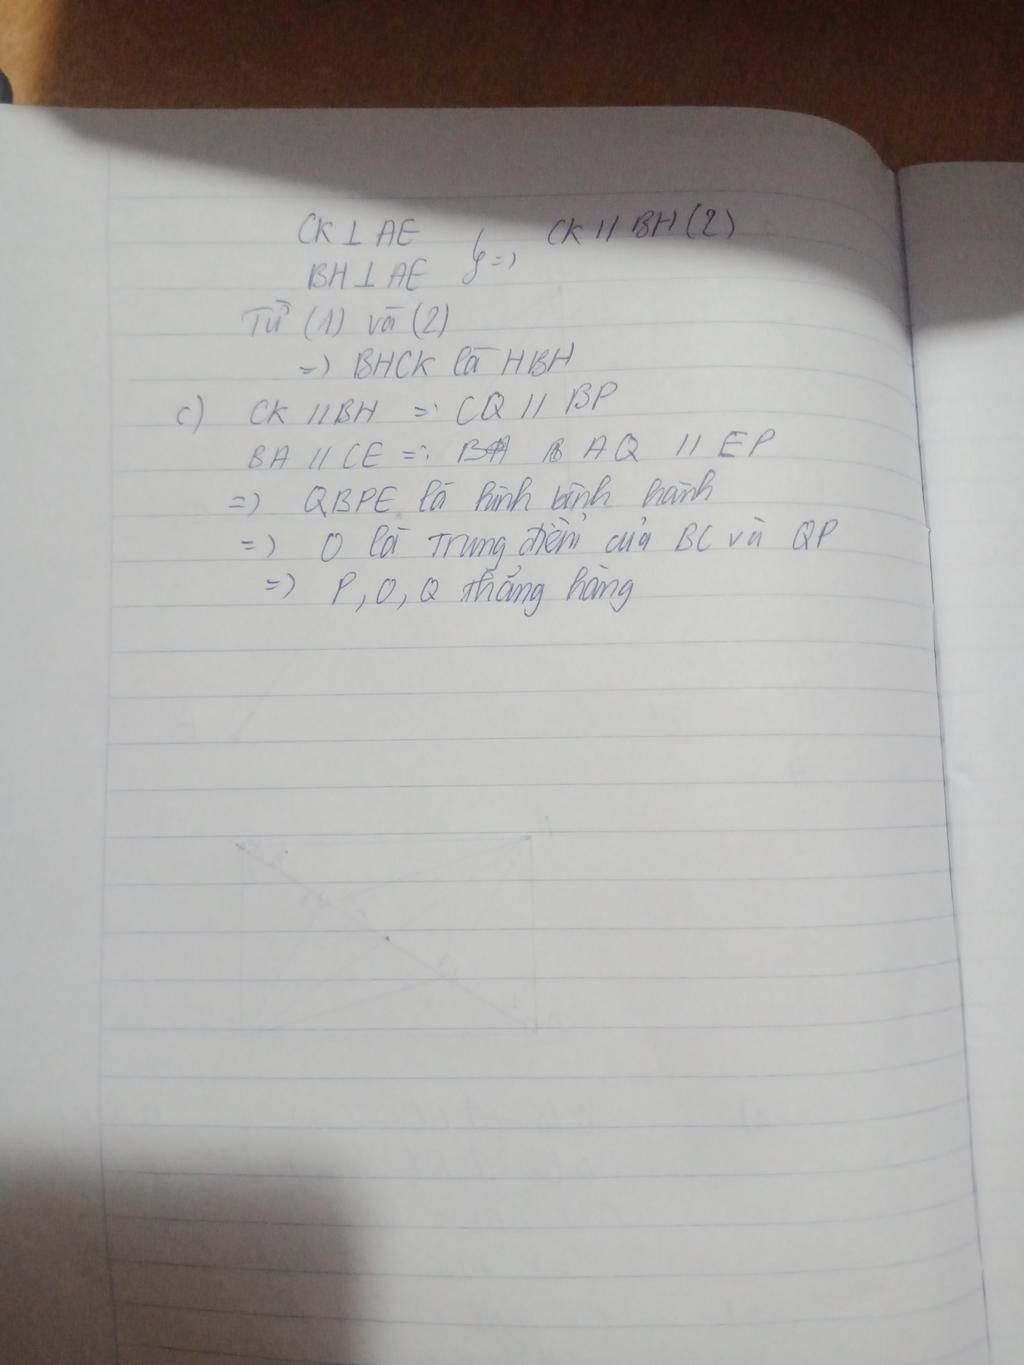 CK ⊥ AE
BH ⊥ AE } => CK // BH (2)
Từ (1) và (2)
=> BHCK là HBH
c) CK // BH => CQ // BP
BA // CE => AQ // EP
=> QBPE là hình bình hành
=> O là trung điểm của BC và QP
=> P, O, Q thẳng hàng